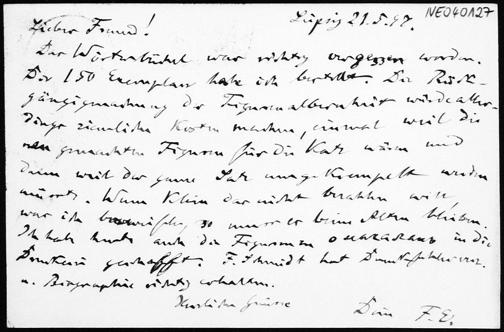 NEO40127
Leipzig 21.5.97.
Lieber Freund!
Der Wörterbüchel war richtig vergessen worden.
Die 150 Exemplare habe ich bestellt. Die Rück-
gängigmachung der würde aller-
dings ziemliche Kosten machen, einmal weil die
neu gemachten Figuren für die Katz wären und
dann weil der ganze Satz umgekrempelt werden
müsste. Wenn Klein das nicht bezahlen will,
was ich so muss er beim Alten bleiben.
Ich habe heute auch die Figuren in die
Druckerei geschafft. F. Schmidt hat
u. Biographie richtig erhalten.
Herzliche Grüsse
Dein F.E.